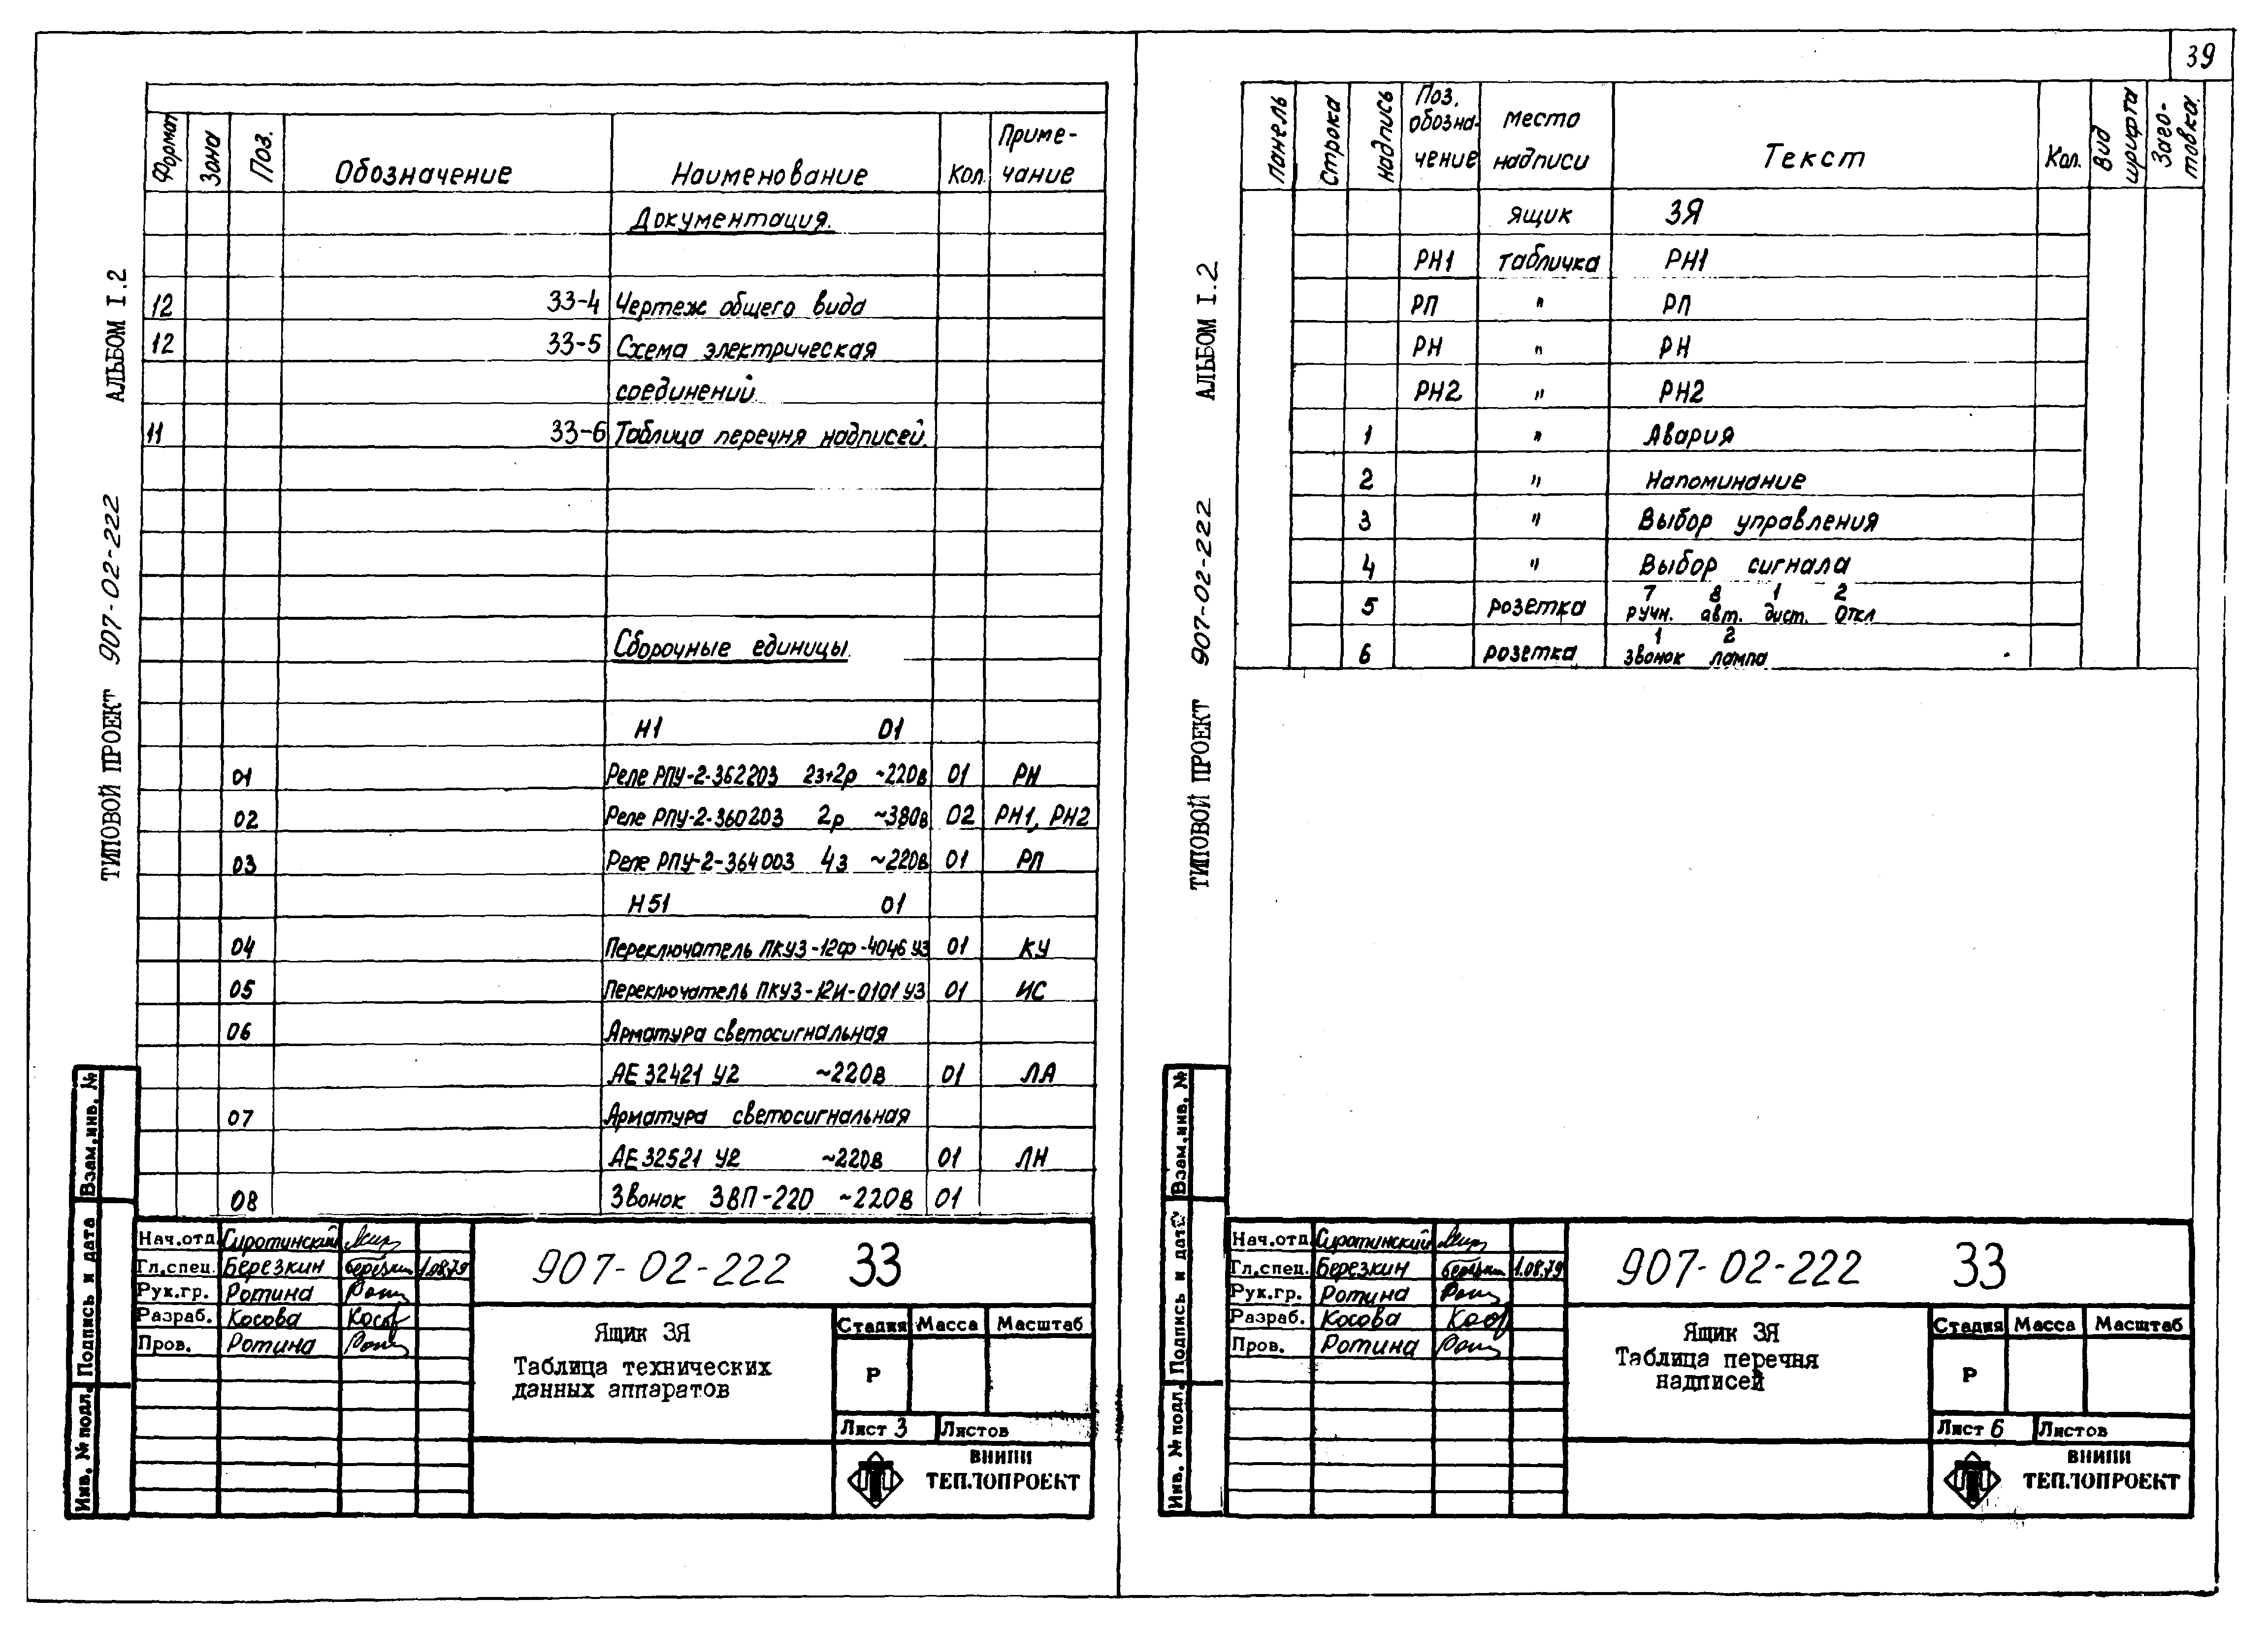 39
ТИПОВОЙ ПРОЕКТ 907-02-222 АЛЬБОМ I.2
Формат Зона Поз. Обозначение Наименование Кол. Приме-
чание
Документация.
12 33-4 Чертеж общего вида
12 33-5 Схема электрическая
соединений
11 33-6 Таблица перечня надписей.
Сборочные единицы.
Н1 01
01 Реле РПУ-2-362203 2з+2р ~220в 01 РН
02 Реле РПУ-2-360203 2р ~380в 02 РН1, РН2
03 Реле РПУ-2-364003 4з ~220в 01 РП
Н51 01
04 Переключатель ПКУ3-12Ф-4046 У3 01 КУ
05 Переключатель ПКУ3-12И-0101 У3 01 ИС
06 Арматура светосигнальная
АЕ 32421 У2 ~220в 01 ЛА
07 Арматура светосигнальная
АЕ 32521 У2 ~220в 01 ЛН
08 Звонок ЗВП-220 ~220в 01
Взам.инв. №
Подпись и дата
Инв. № подл.
Нач.отд. Сиротинский
Гл.спец. Березкин 1.08.79
Рук.гр. Ротина
Разраб. Косова
Пров. Ротина
907-02-222 33
Ящик 3Я
Таблица технических
данных аппаратов
Стадия Масса Масштаб
Р
Лист 3 Листов
ВНИПИ
ТЕПЛОПРОЕКТ
ТИПОВОЙ ПРОЕКТ 907-02-222 АЛЬБОМ I.2
Панель Строка Надпись Поз.
обозна-
чение Место
надписи Текст Кол. Вид
шрифта Заго-
товка.
ящик 3Я
РН1 табличка РН1
РП " РП
РН " РН
РН2 " РН2
1 " Авария
2 " Напоминание
3 " Выбор управления
4 " Выбор сигнала
7 8 1 2
5 розетка ручн. авт. дист. откл
1 2
6 розетка звонок лампа
Взам.инв. №
Подпись и дата
Инв. № подл.
Нач.отд. Сиротинский
Гл.спец. Березкин 1.08.79
Рук.гр. Ротина
Разраб. Косова
Пров. Ротина
907-02-222 33
Ящик 3Я
Таблица перечня
надписей
Стадия Масса Масштаб
Р
Лист 6 Листов
ВНИПИ
ТЕПЛОПРОЕКТ